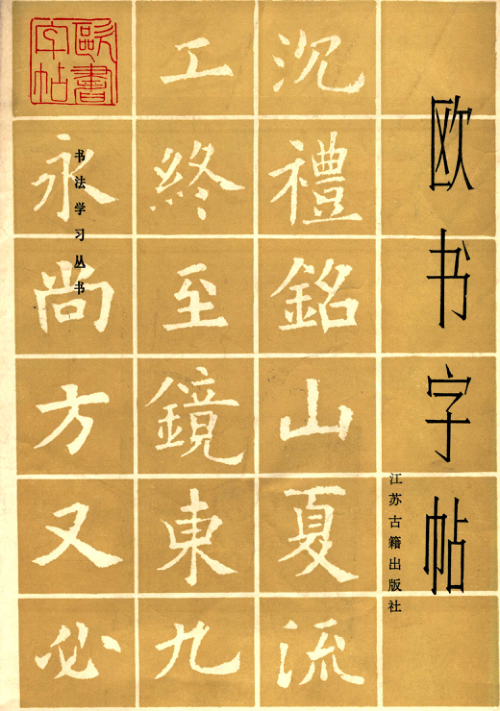 欧书字帖
江苏古籍出版社
沉禮銘山夏流
工終至鏡東九
歐書
字帖
书法学习丛书
永尚方又必